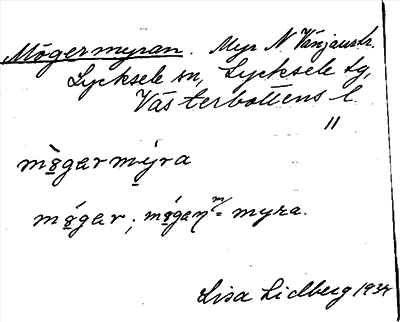 Mögermyran. Myr N Vänjaustr.
Lycksele sn, Lycksele tg,
Västerbottens l.
"
mögarmyra
mögar; mögaη m = myra.
Lisa Lidberg 1934